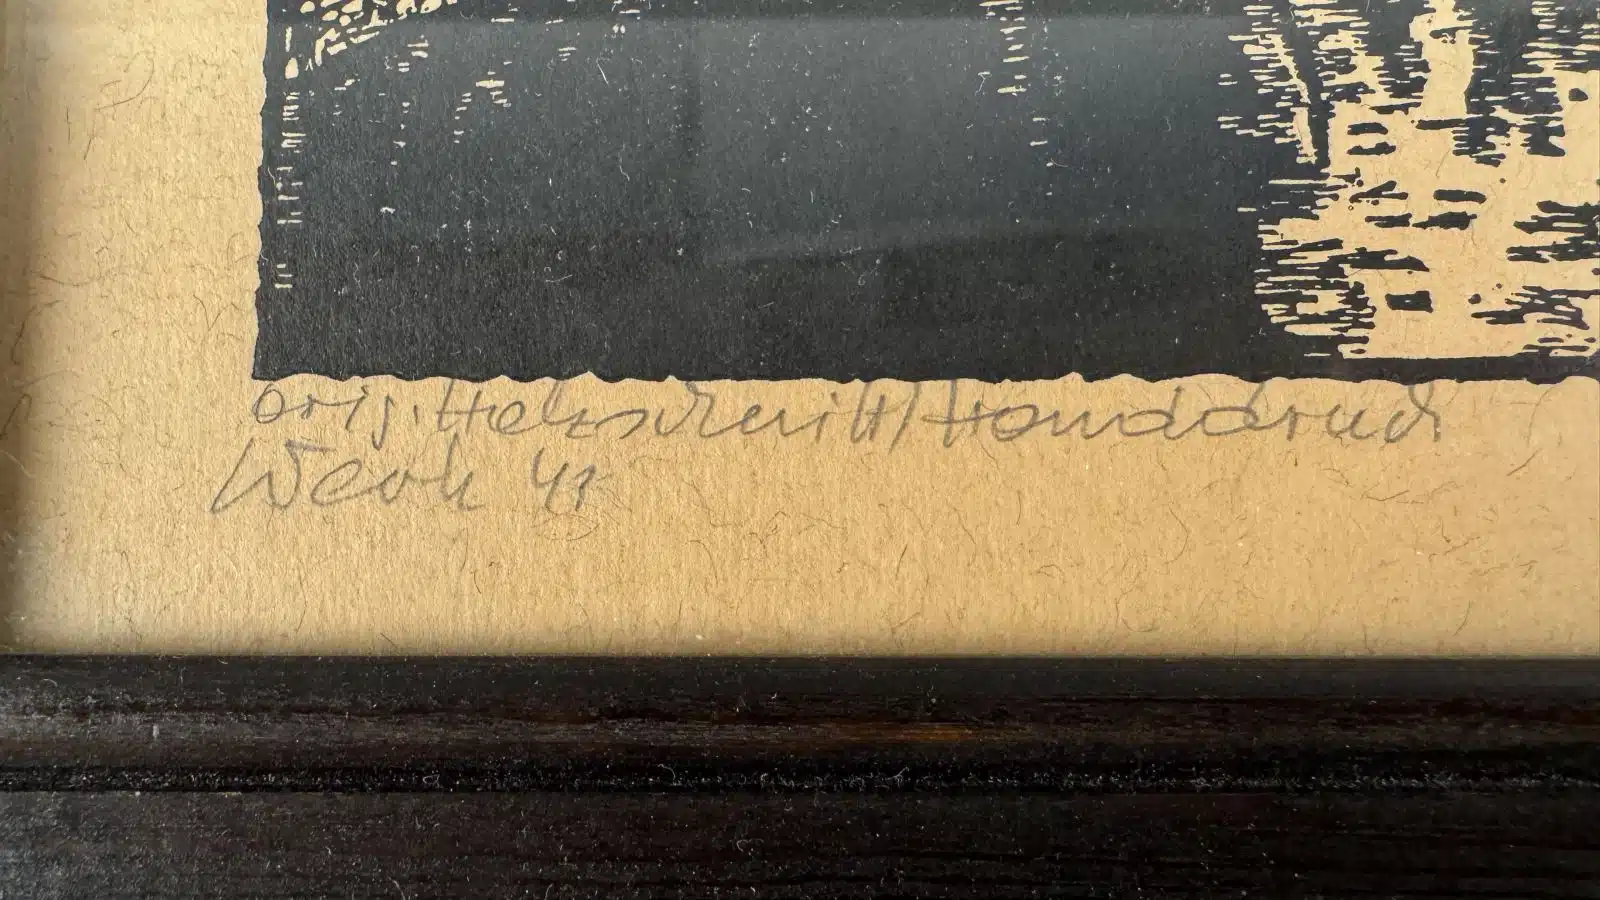 orig. Holzschnitt/Handdruck
Werk 41